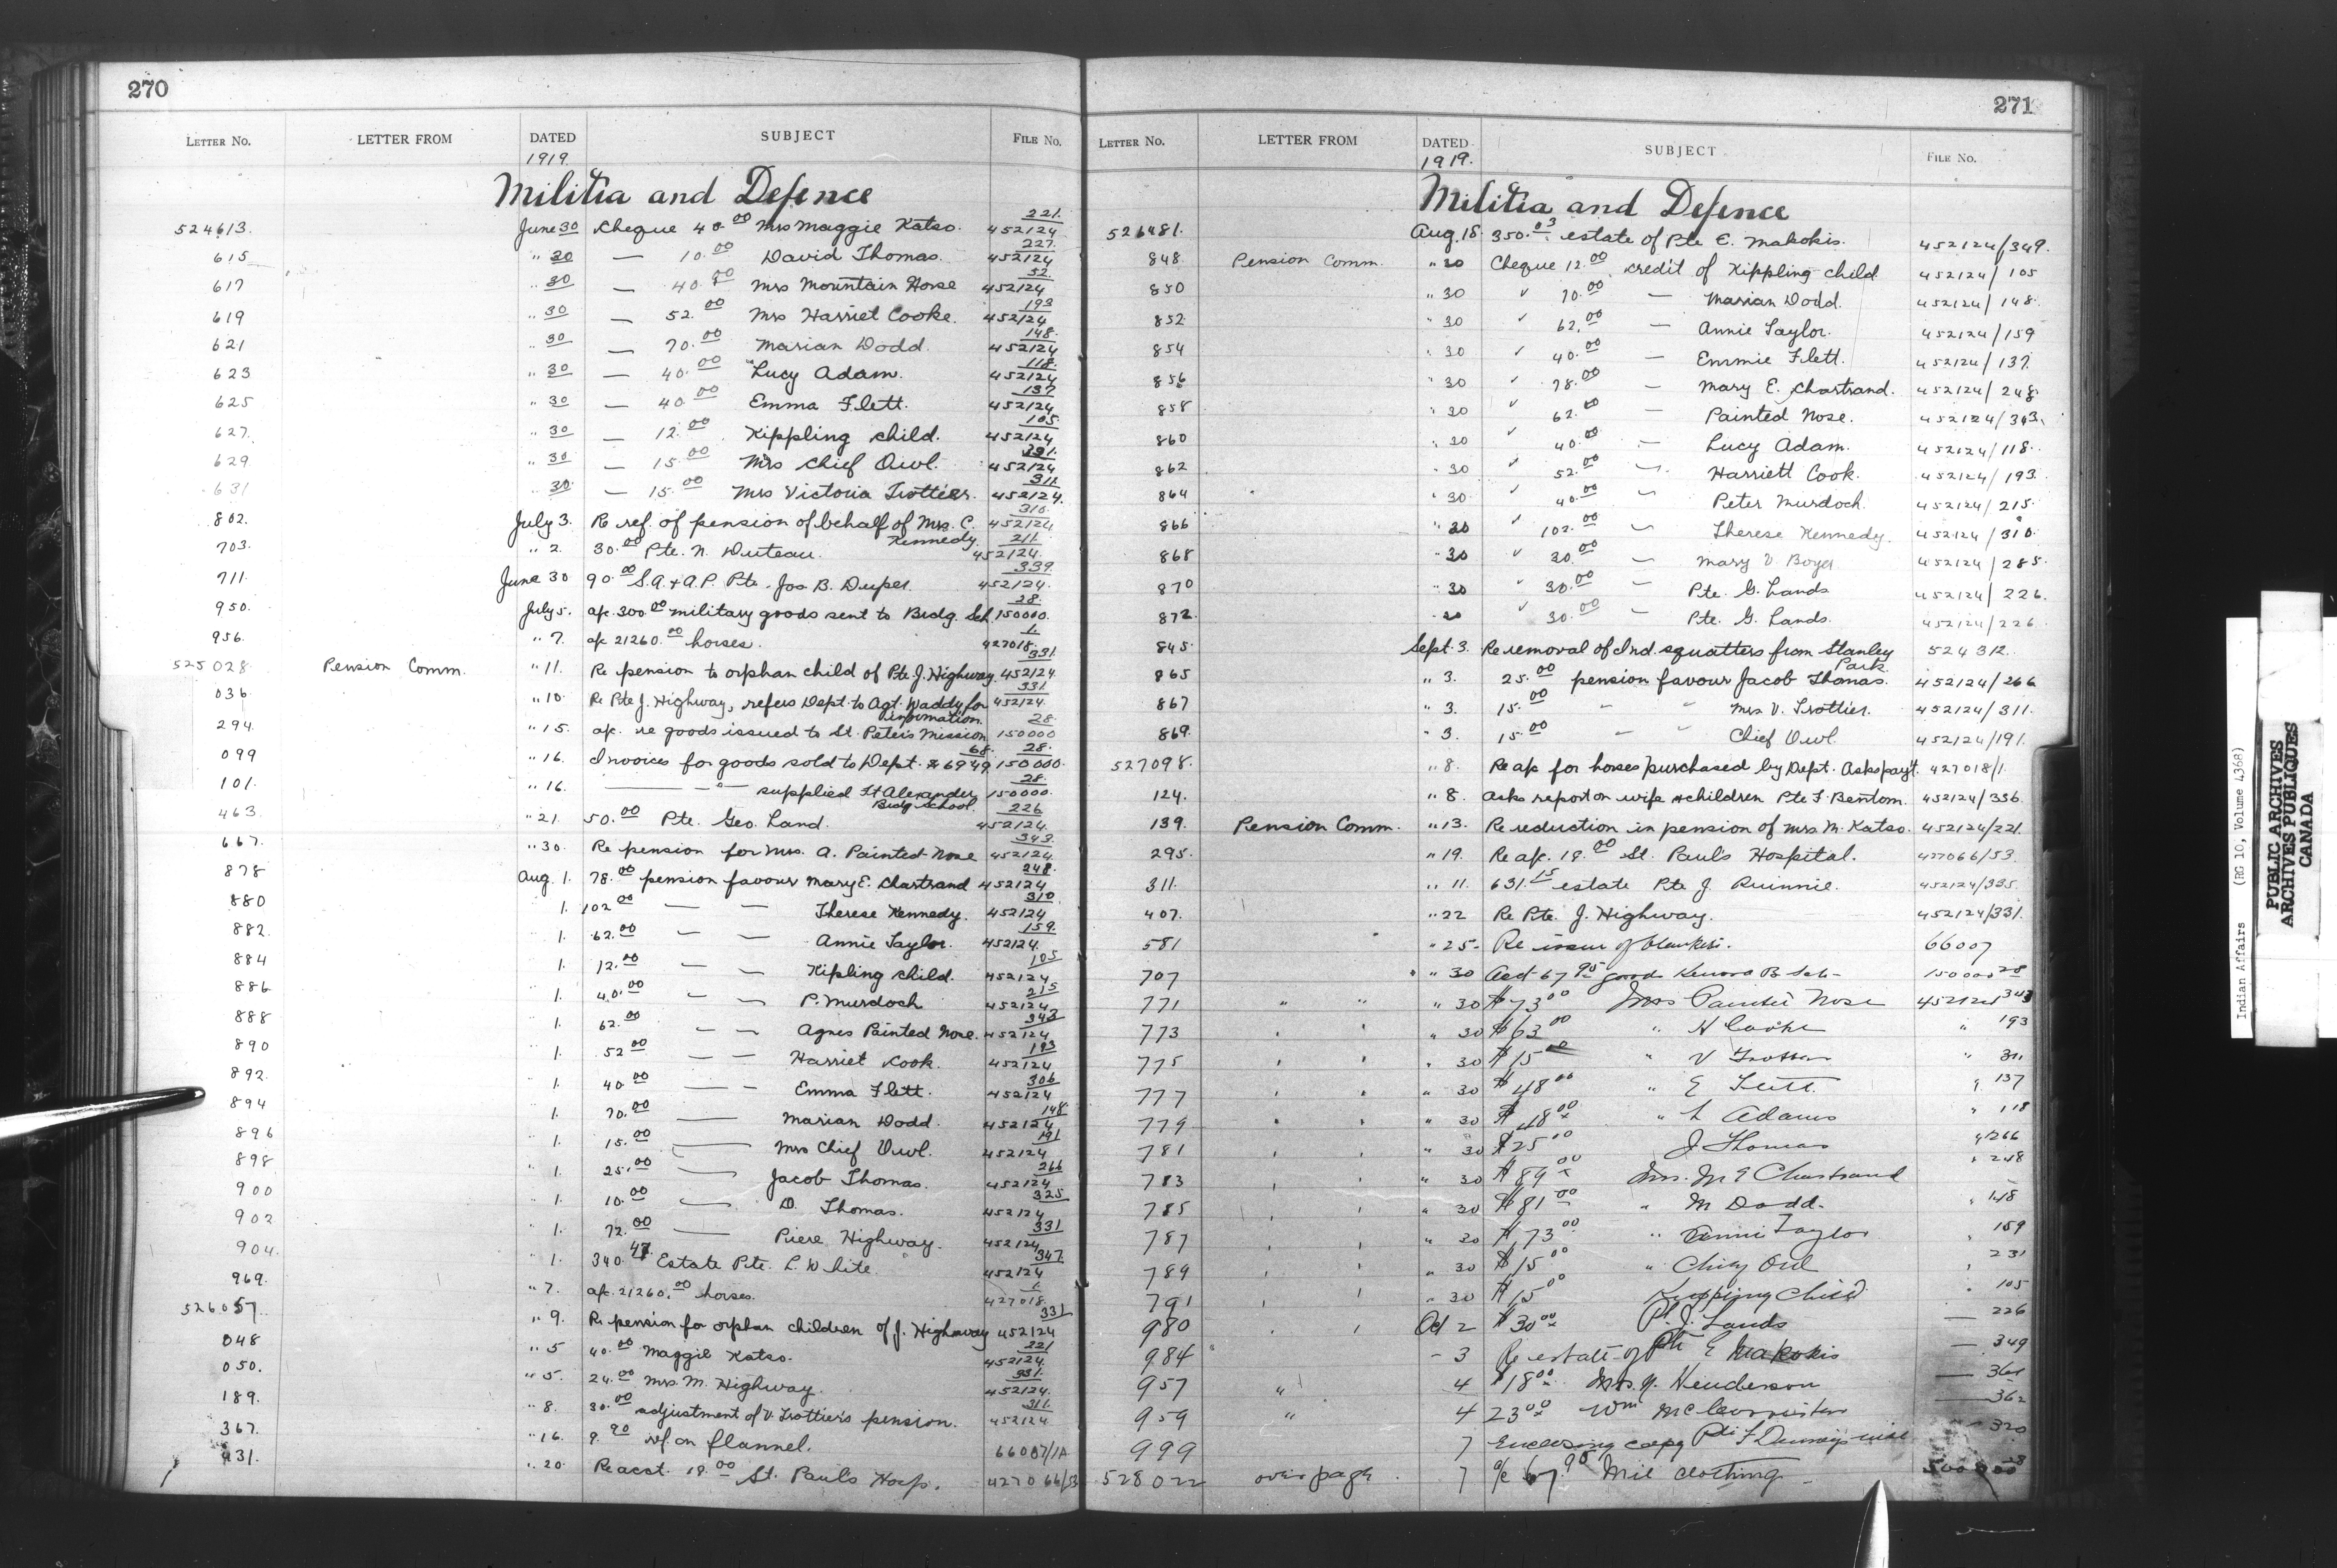 270
LETTER No. LETTER FROM DATED SUBJECT FILE No.
1919.
Militia and Defence
524613. June 30 Cheque 40.00 Mrs Maggie Katso. 221. 452124
615 " 30 — 10.00 David Thomas. 227. 452124
617 " 30 — 40.00 Mrs Mountain Horse 52. 452124
619 " 30 — 52.00 Mrs Harriet Cooke. 193 452124
621 " 30 — 70.00 Marian Dodd. 148. 452124
623 " 30 — 40.00 Lucy Adam. 118. 452124
625 " 30 — 40.00 Emma Flett. 137 452124
627. " 30 — 12.00 Kippling child. 105. 452124
629 " 30 — 15.00 Mrs Chief Owl. 452124
631 " 30 — 15.00 Mrs Victoria Trottier. 311. 452124.
802. July 3. Re ref. of pension of behalf of Mrs. C. Kennedy. 310. 452124
703. " 2. 30.00 Pte. N. Duteau. 211. 452124.
711. June 30 90.00 S.A. + A.P. Pte. Jos. B. Duper. 339. 452124.
950. July 5. a/c 300.00 military goods sent to Brdg. Sch. 28. 150000.
956. " 7. a/c 21260.00 horses. 1. 427018.
525028 Pension Comm. " 11. Re pension to orphan child of Pte. J. Highway. 331 452124
036. " 10. Re Pte J. Highway, refers Dept. to Agt. Waddy for information. 331. 452124.
294. " 15. a/c. re goods issued to St. Peter's Mission 28. 150000
099 " 16. Invoices for goods sold to Dept. 26949.68. 28. 150000.
101. " 16. — " — supplied Ft Alexander Brdg School. 28. 150000.
463 " 21. 50.00 Pte. Geo. Land. 226 452124.
667. " 30. Re pension for Mrs. A. Painted Nose 343. 452124.
878 Aug. 1. 78.00 pension favour Mary E. Chartrand 248. 452124
880 1. 102.00 — — Therese Kennedy. 310 452124
882. 1. 62.00 — — Annie Taylor. 159. 452124.
884 1. 12.00 — — Kipling child. 105 452124
886 1. 40.00 — — P. Murdoch 215 452124
888 1. 62.00 — — Agnes Painted Nose. 343 452124
890 1. 52.00 — — Harriet Cook. 193 452124
892. 1. 40.00 — — Emma Flett. 306 452124
894 1. 70.00 — Marian Dodd. 148 452124
896 1. 15.00 — Mrs Chief Owl. 191 452124
898 " 1. 25.00 — Jacob Thomas. 266 452124
900 " 1. 10.00 — D. Thomas. 325 452124
902 " 1. 72.00 — Piere Highway. 331 452124
904. " 1. 340.47 Estate Pte. L. White. 347. 452124
969. " 7. a/c. 21260.00 horses. 1. 427018.
526057. " 9. Re pension for orphan children of J. Highway 331 452124
048 " 5 40.00 Maggie Katso. 221 452124.
050. " 5. 24.00 Mrs. M. Highway. 331. 452124.
189. " 8. 30.00 adjustment of V. Trottier's pension. 311. 452124
367. " 16. 9.90 ref. on flannel. 66007/1A
431. " 20. Re acct. 18.00 St. Paul's Hosp. 427066/53
271
LETTER No. LETTER FROM DATED SUBJECT FILE No.
1919.
Militia and Defence
526481. Aug. 18. 350.03 estate of Pte E. Makokis. 452124/349.
848 Pension Comm. " 30 Cheque 12.00 credit of Kippling child 452124/105
850 " 30 " 70.00 — Marian Dodd. 452124/148.
852 " 30 " 62.00 — Annie Taylor. 452124/159
854 " 30 " 40.00 — Emmie Flett. 452124/137.
856 " 30 " 78.00 — Mary E. Chartrand. 452124/248
858 " 30 " 62.00 — Painted Nose. 452124/343.
860 " 30 " 40.00 — Lucy Adam. 452124/118.
862 " 30 " 52.00 — Harriett Cook. 452124/193.
864 " 30 " 40.00 — Peter Murdoch. 452124/215.
866 " 30 " 102.00 — Therese Kennedy. 452124/310.
868 " 30 " 30.00 — Mary V. Boyer 452124/285.
870 " 30 " 30.00 — Pte. G. Lands 452124/226.
872. " 30 " 30.00 — Pte. G. Lands. 452124/226
845. Sept. 3. Re removal of Ind. squatters from Stanley Park. 524312.
865 " 3. 25.00 pension favour Jacob Thomas. 452124/266
867 " 3. 15.00 " " Mrs V. Trottier. 452124/311.
869. " 3. 15.00 — " Chief Owl. 452124/191.
527098. " 8. Re a/c for horses purchased by Dept. Asks payt. 427018/1.
124. " 8. Asks report on wife + children Pte F. Bentom. 452124/336.
139. Pension Comm. " 13. Re reduction in pension of Mrs. M. Katso. 452124/221.
295. " 19. Re a/c. 18.00 St. Paul's Hospital. 427066/53.
311. " 11. 631.15 estate Pte J. Runnie. 452124/335.
407. " 22 Re Pte. J. Highway. 452124/331.
581 " 25. Re issue of blankets. 66007
707 " 30 Acct 67.95 goods Kenora B Sch — 150000 28
771 " " " 30 $73.00 Mrs Painted Nose 452124 343
773 " " " 30 $63.00 " H Cooke " 193
775 " " " 30 $15.00 " V Trottier " 311
777 " " " 30 $48.00 " E Flett. " 137
779 " " " 30 $48.00 " L Adams " 118
781 " " " 30 $25.00 J Thomas " 266
783 " " " 30 $89.00 Mrs. M E Chartrand " 248
785 " " " 30 $81.00 " M Dodd. " 148
787 " " " 30 $73.00 " Annie Taylor " 159
789 " " " 30 $15.00 " Chief Owl " 231
791 " " " 30 $15.00 Kippling Child " 105
980 " " Oct 2 $30.00 Pt. J. Lands — 226
984 " – 3 Re estate of Pte E Makokis — 349
957 " 4 $18.00 Mrs. N. Henderson — 361
959 " 4 23.00 Wm — 362
999 7 Enclosing copy Pte F will 320
528022 over page. 7 a/c 67.98 Mil clothing — 28
Indian Affairs (RG 10, Volume 4368)
PUBLIC ARCHIVES
ARCHIVES PUBLIQUES
CANADA